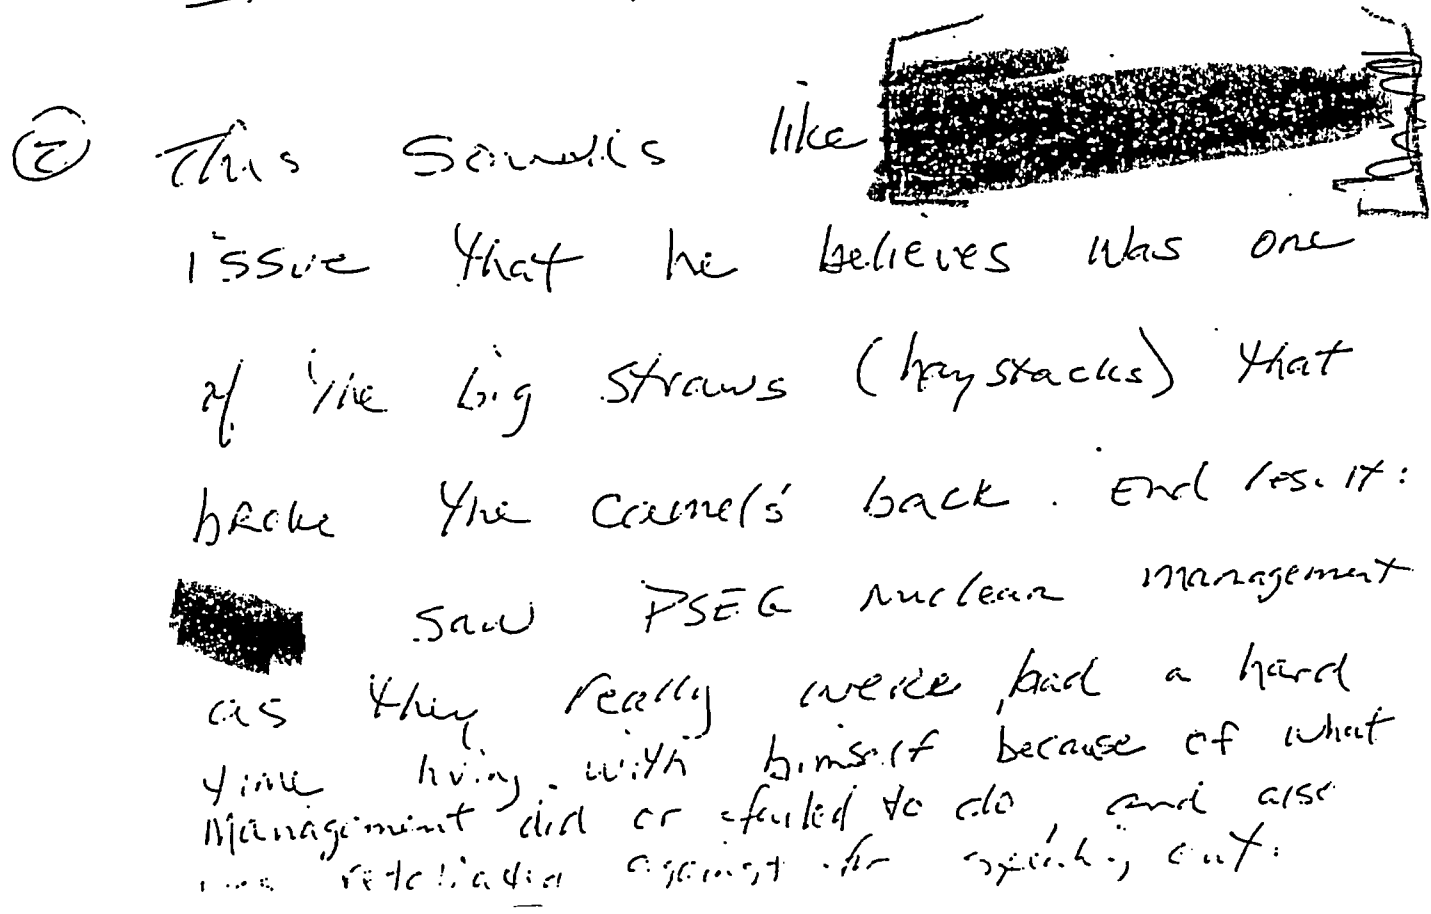 ② This sounds like
issue that he believes was one
of the big straws (haystacks) that
broke the camel's back. End result:
saw PSEG Nuclear management
as they really were, had a hard
time living with himself because of what
Management did or failed to do, and also
was retaliated against for speaking out.